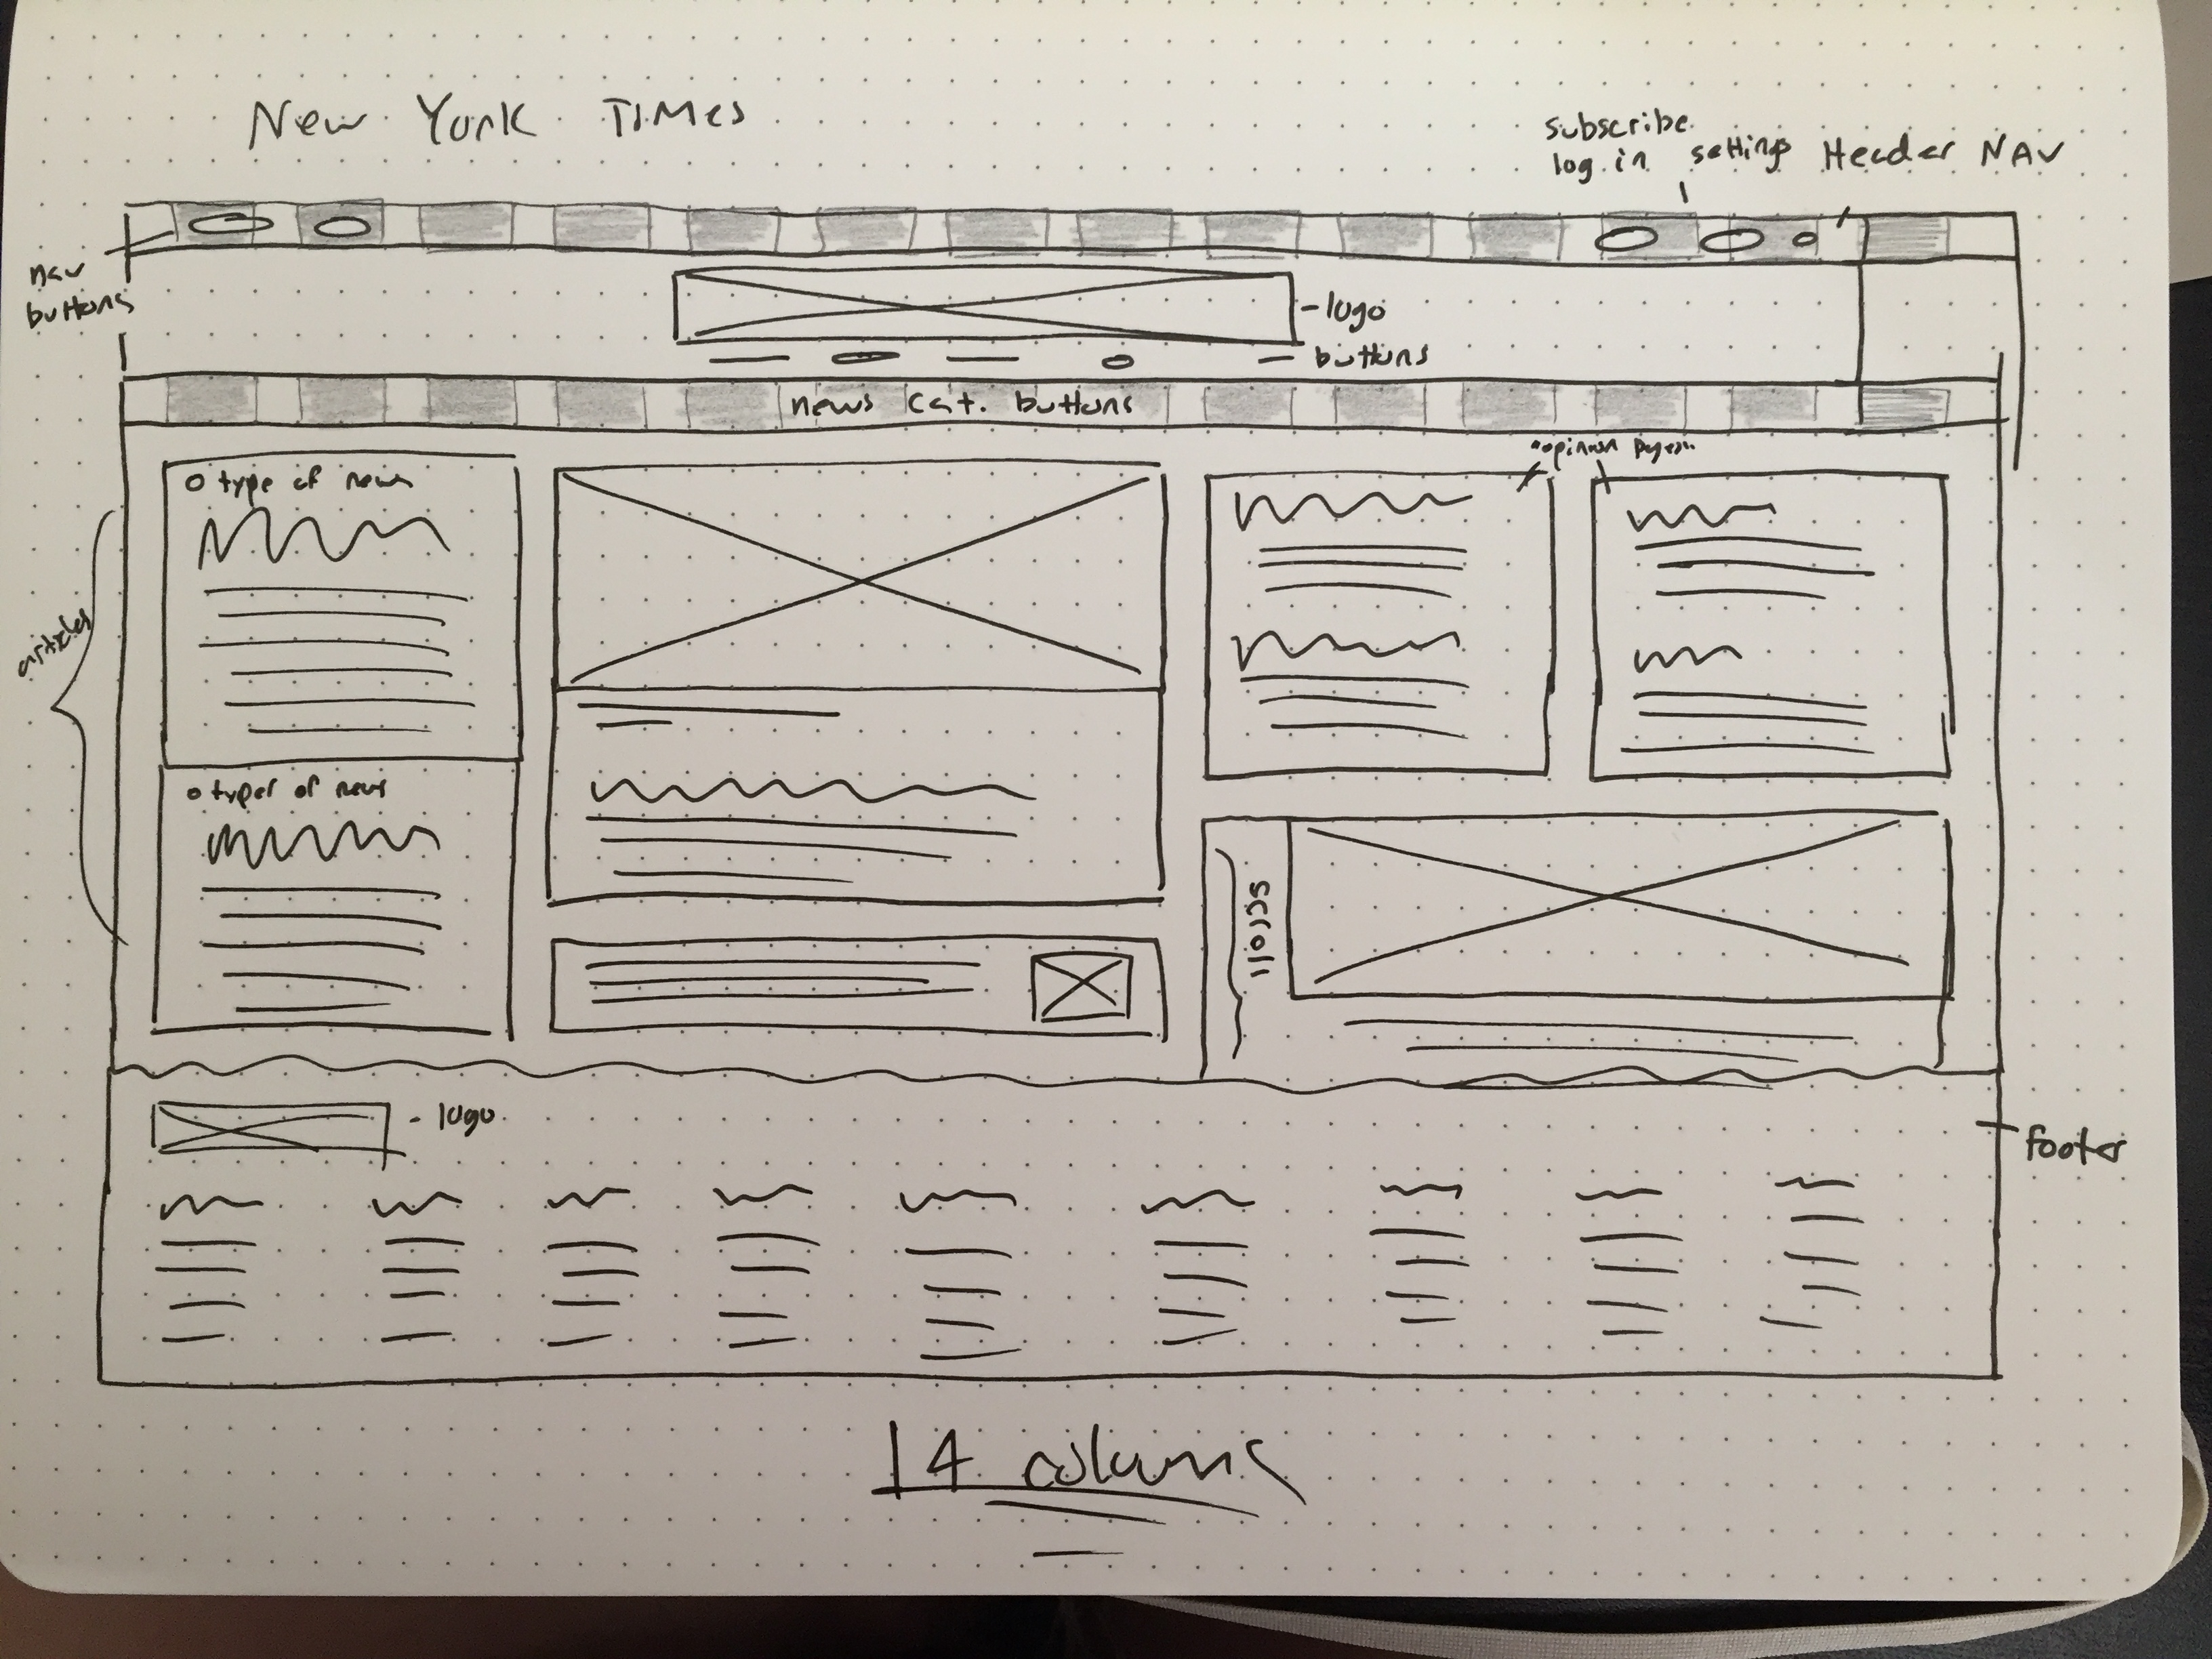 New York Times
subscribe
log in
settings
Header NAV
nav
buttons
-logo
buttons
news cat. buttons
opinion pages
o type of news
articles
o types of news
scroll
- logo
footer
14 columns